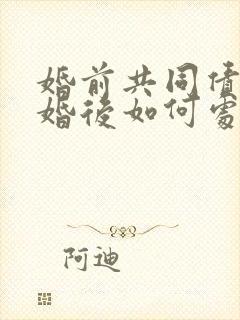 婚前共同債
婚後如何處
阿迪